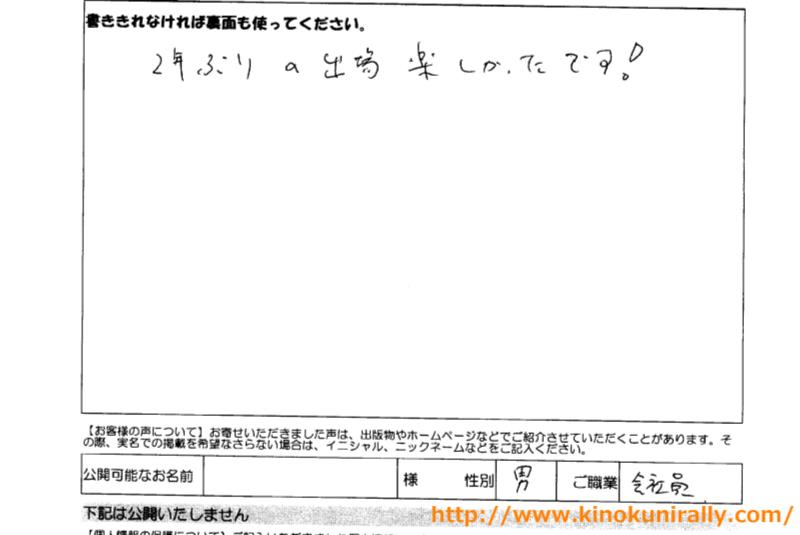 書ききれなければ裏面も使ってください。
2年ぶりの出場楽しかったです!
【お客様の声について】お寄せいただきました声は、出版物やホームページなどでご紹介させていただくことがあります。そ
の際、実名での掲載を希望なさらない場合は、イニシャル、ニックネームなどをご記入ください。
公開可能なお名前 様 性別 男 ご職業 会社員
下記は公開いたしません
http://www.kinokunirally.com/